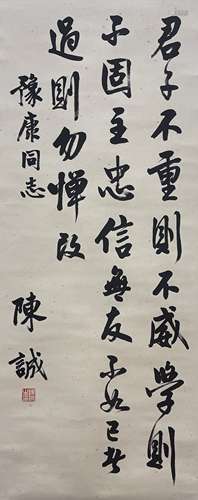 君子不重則不威學則
不固主忠信無友不如己者
過則勿憚改
豫康同志
陳誠